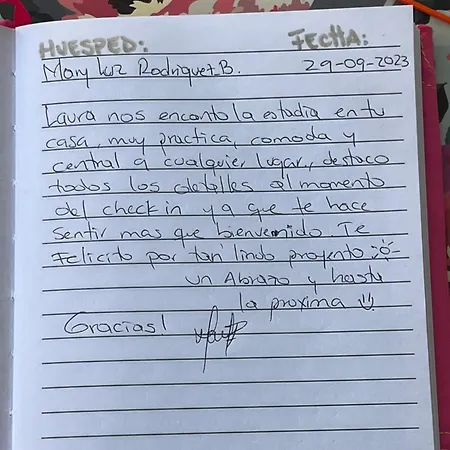 HUESPED: FECHA:
Mary Luz Rodriguez B. 29-09-2023
Laura nos encanto la estadia en tu
casa, muy practica, comoda y
central a cualquier lugar, destaco
todos los detalles al momento
del check in ya que te hace
sentir mas que bienvenido. Te
Felicito por tan lindo proyecto
un Abrazo y hasta
la proxima
Gracias!